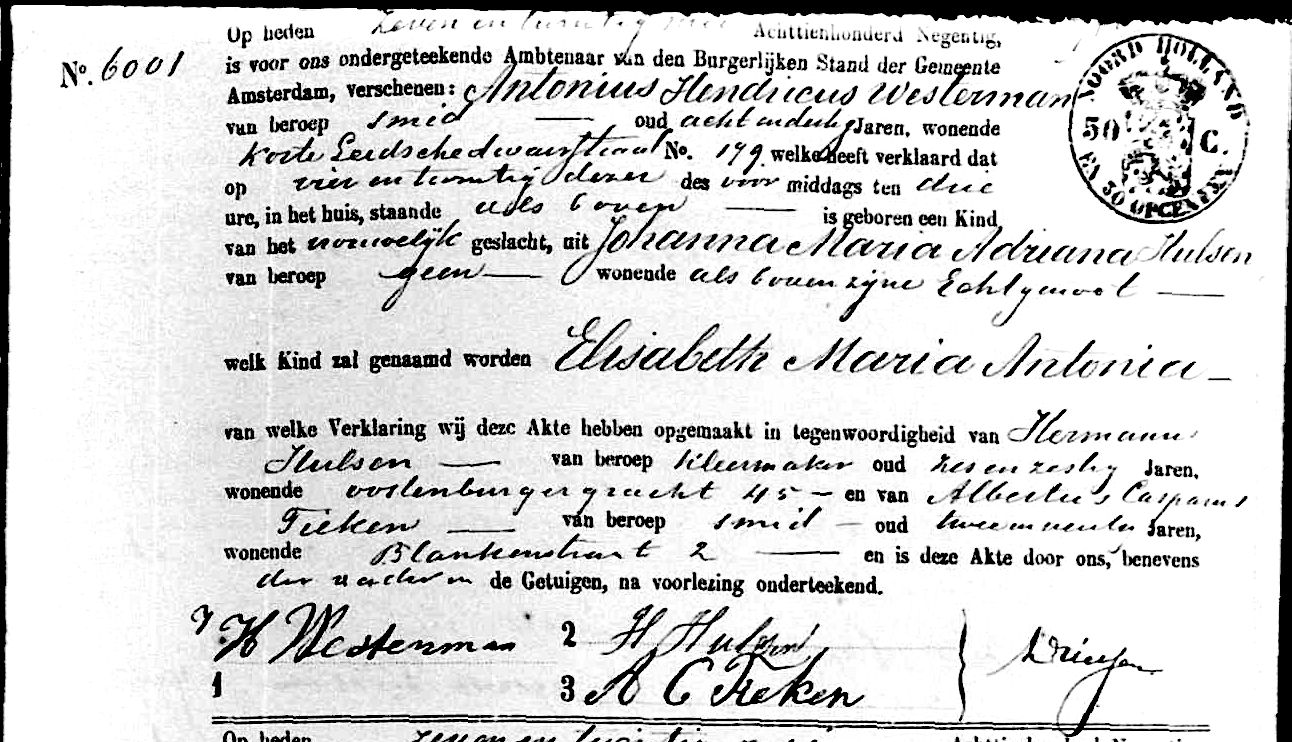 Op heden zeven en twintig mei Achttienhonderd Negentig,
No. 6001
is voor ons ondergeteekende Ambtenaar van den Burgerlijken Stand der Gemeente
Amsterdam, verschenen: Antonius Hendricus Westerman
van beroep smid — oud acht en dertig Jaren, wonende
Korte Leidschedwarsstraat No. 179 welke heeft verklaard dat
op vier en twintig dezer des voor middags ten drie
ure, in het huis, staande als boven — is geboren een Kind
van het vrouwelijk geslacht, uit Johanna Maria Adriana Hulsen
van beroep geen — wonende als boven zijne Echtgenoot —
welk Kind zal genaamd worden Elisabeth Maria Antonia —
van welke Verklaring wij deze Akte hebben opgemaakt in tegenwoordigheid van Hermann
Hulsen — van beroep kleermaker oud zes en zestig Jaren,
wonende oostenburgergracht 45 — en van Albertus Casparus
Fieken — van beroep smid — oud Jaren,
wonende Blankenstraat 2 — en is deze Akte door ons, benevens
den vader en de Getuigen, na voorlezing onderteekend.
H Westerman 2 H Hulsen
1 3 A C Fieken
Op heden zeven en twintig
NOORD HOLLAND
50 C.
EN 30 OPCENTEN